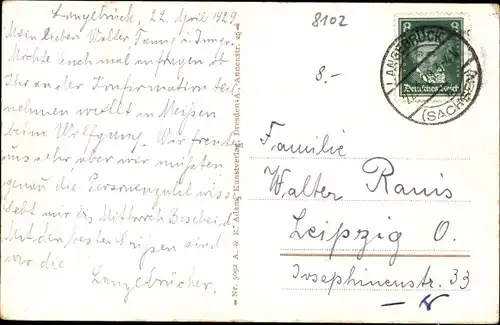 Langebrück, 22. April 1929.
Mein lieben Walter Tann u. Junge
Möchte euch mal anfragen ob
Ihr an der Konfirmation teil
nehmen wollt in Meißen
beim Wolfgang. Wir freuen
uns sehr aber wir müßten
genau die Personenzahl wis-
gebt uns bis Mittwoch Bescheid
Mit den besten Grüßen sind
wir die
Langebrücker.
Nr. 5992 A. & R. Adam, Kunstverlag, Dresden-A., Annenstr.
8102
8.-
8 8
Deutsches Reich
LANGEBRÜCK
(SACHSEN)
Familie
Walter Ranis
Leipzig O.
Josephinenstr. 33